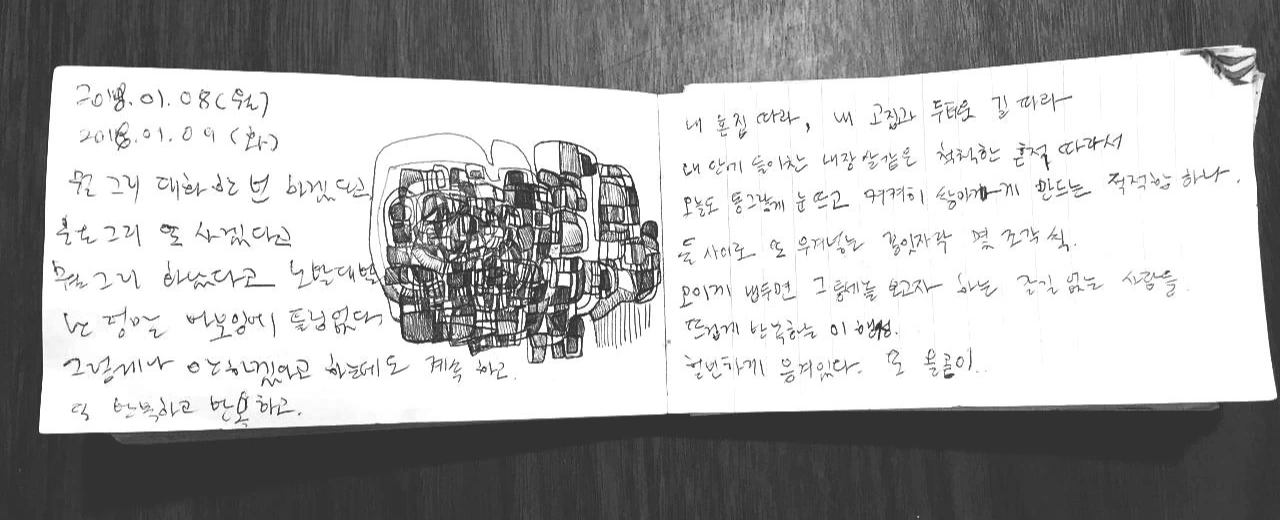 2018.01.08 (월)
2018.01.09 (화)
뭘 그리 대화 한 번 하겠다고
뭘 그리 또 사겠다고
뭘 그리 하겠다고 노발대발
난 정말 바보임에 틀림없다
그렇게나 안하겠다고 하는데도 계속 하고.
또 반복하고 반복하고.
내 혼집 따라, 내 고집과 두터운 길 따라
내 안에 들이찬 내장 알갈은 척척한 흔적 따라서
오늘도 동그랗게 눈 뜨고 켜켜히 쌓이게 만드는 적적함 하나.
틈 사이로 또 우겨넣는 종잇자락 몇 조각 씩.
모이게 냅두면 그 틈새를 보고자 하는 끈길 없는 사람들.
뜨겁게 반복하는 이 행성.
흥건하게 응겨있다. 또 울콘이..